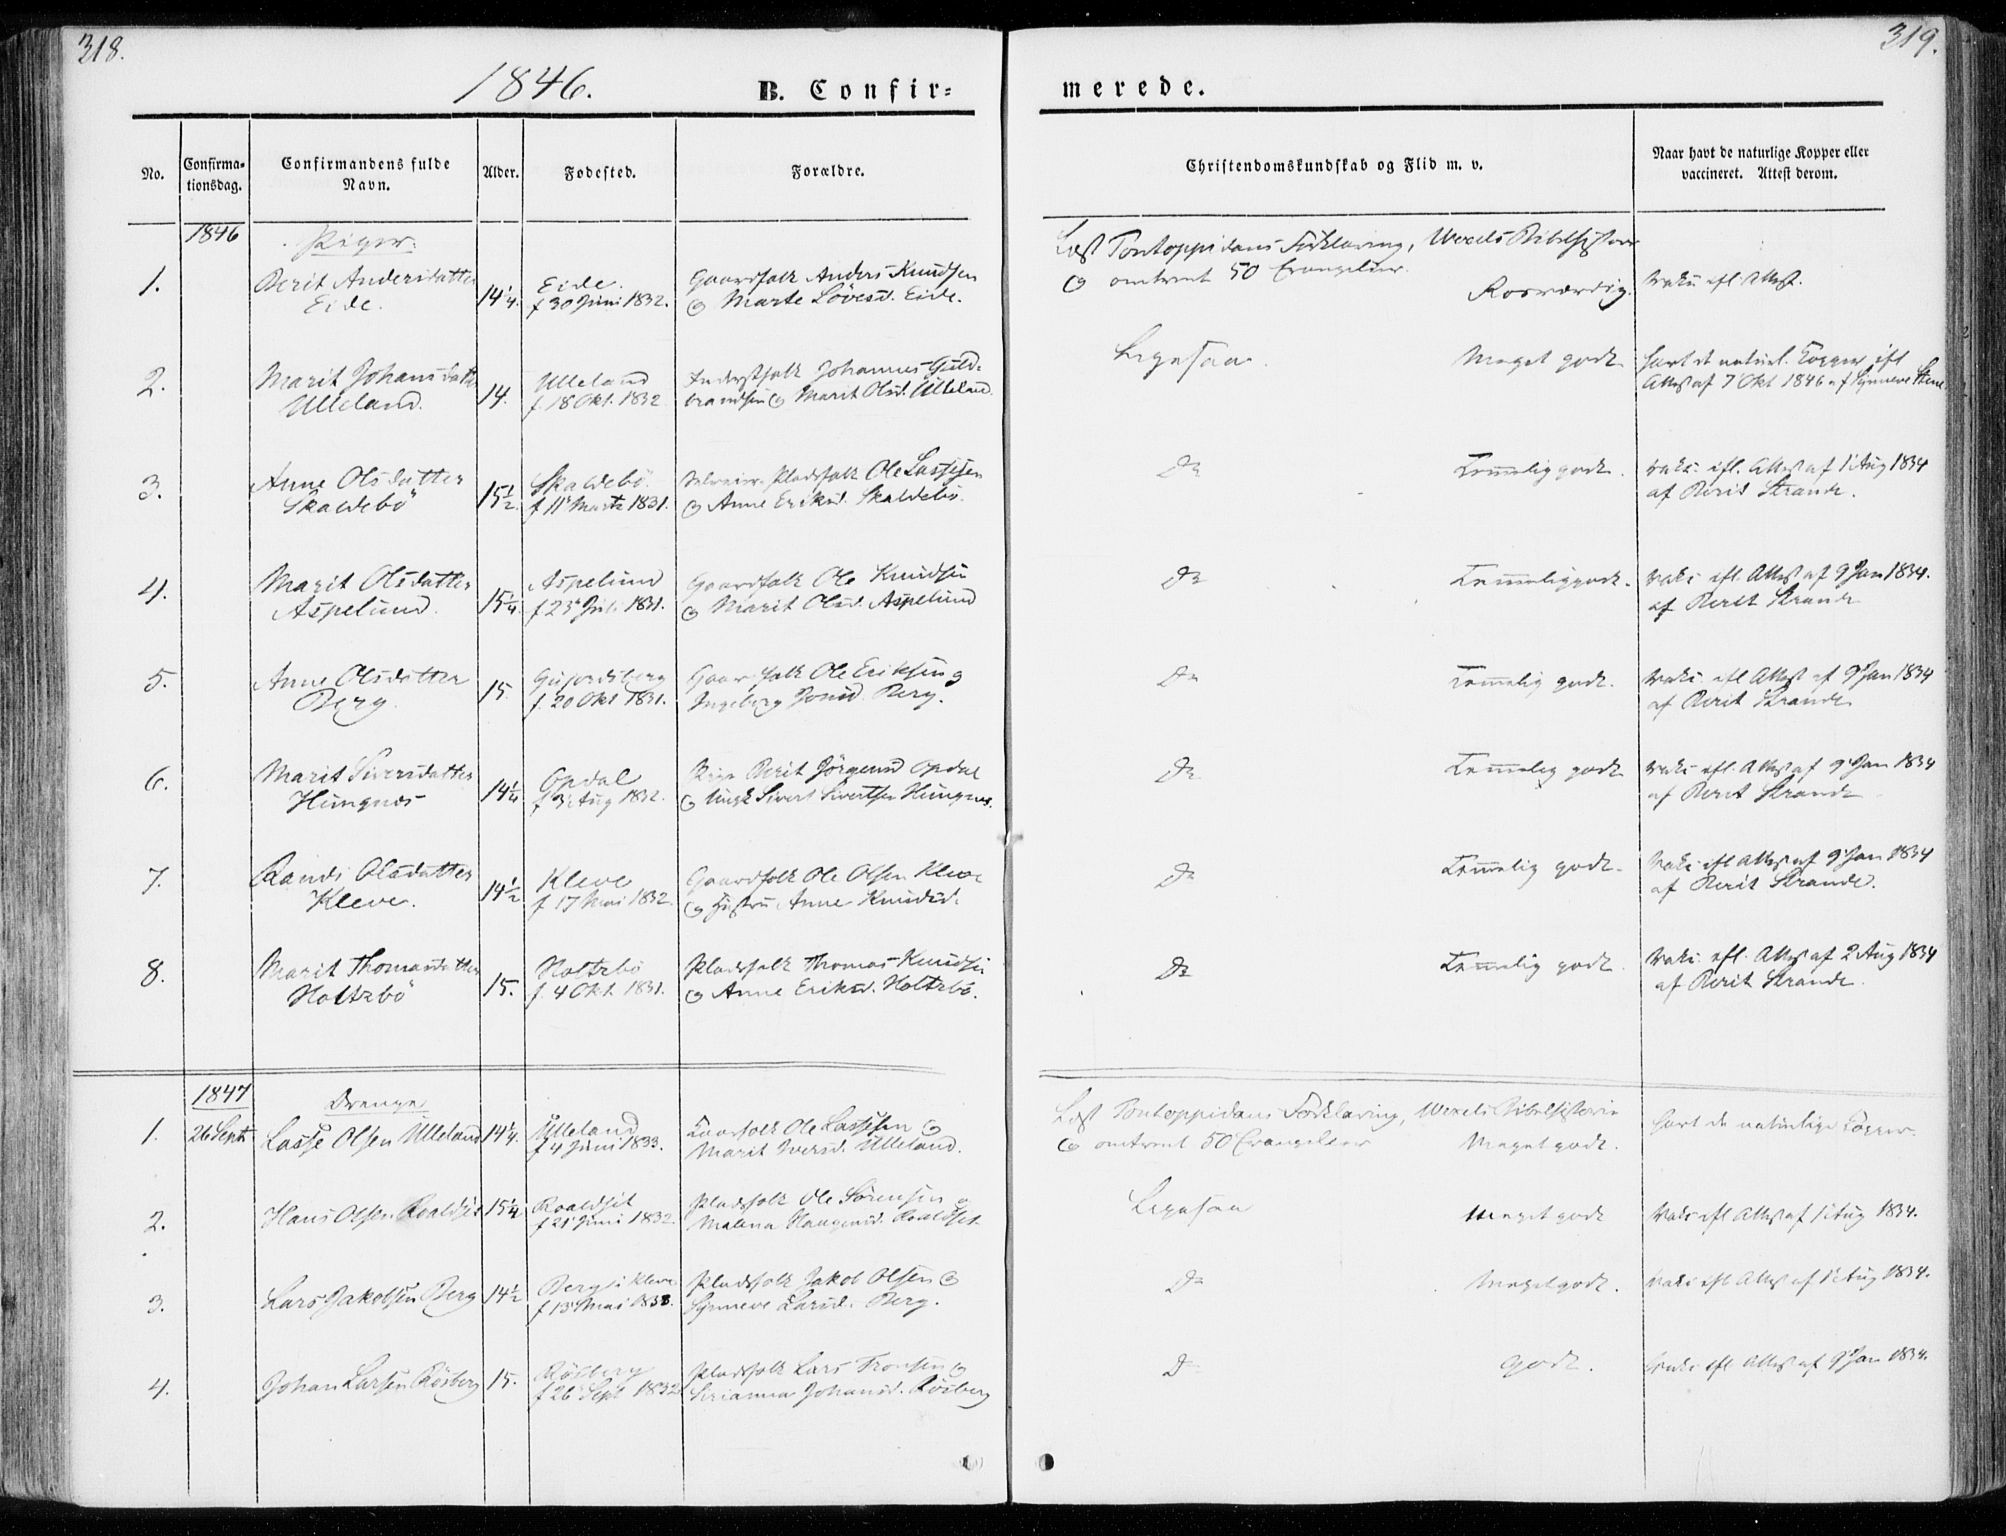 318.
319.
1846.
B. Confir=
merede.
No.
Confirma-
tionsdag.
Confirmandens fulde
Navn.
Alder.
Fødested.
Forældre.
Christendomskundskab og Flid m. v.
Naar havt de naturlige Kopper eller
vaccineret. Attest derom.
1846
Piger:
Læst Pontoppidans Forklaring, Wexels Bibelhistorie
og omtrent 50 Evangelier.
1.
Berit Andersdatter
Eide.
14 1/4.
Eide.
f 30 Juni 1832.
Gaardfolk Anders Knudsen
og Marte Lövesd. Eide.
Rosværdig.
Vaks. efl. Attest.
2.
Marit Johansdatter
Ulleland.
14.
Ulleland
f. 18 Okt. 1832
Inderstfolk Johannes Guld-
brandsen og Marit Olsd. Ulleland.
Ligesaa.
Meget godt
havt de naturl. Kopper efl
Attest af 7 Okt 1846 af Synneve Stene
3.
Anne Olsdatter
Skaldebö
15 1/2.
Skaldebö.
f 11 Marts 1831.
Pladsfolk Ole Lassesen
og Anne Eriksd. Skaldebö.
Do
Temmelig godt.
Vaks. efl. Attest af 1 Aug 1834
af Berit Strande.
4.
Marit Olsdatter
Aspelund.
15 1/4.
Aspelund
f 23 Juli 1831.
Gaardfolk Ole Knudsen
og Marit Olsd. Aspelund
Do
Temmelig godt.
Vaks. efl. Attest af 9 Jan 1834.
af Berit Strande
5.
Anne Olsdatter
Berg.
15.
f. 20 Okt 1831.
Gaardfolk Ole Eriksen og
Ingeborg Jonsd. Berg.
Do
Temmelig godt.
Vaks. efl Attest af 9 Jan 1834
af Berit Strande
6.
Marit Siversdatter
Hungnes
14 1/4
Opdal
f 3 Aug 1832.
Pige Berit Jörgensd Opdal
og Ungk Sivert Sivertsen Hungnes.
Do
Temmelig godt
Vaks. efl. Attest af 9 Jan 1834
af Berit Strande
7.
Randi Olsdatter
Kleve.
14 1/2
Kleve
f 17 Mai 1832.
Gaardfolk Ole Olsen Kleve
og Hustru Anne Knudsd.
Do
Temmelig godt.
Vaks efl Attest af 9 Jan 1834
af Berit Strande.
8.
Marit Thomasdatter
Holtebö
15.
Holtebö
f. 4 Okt. 1831.
Pladsfolk Thomas Knudsen
og Anne Eriksd. Holtebö.
Do
Temmelig godt.
Vaks. efl. Attest af 2 Aug 1834
af Berit Strande.
1847
Drenge
Læst Pontoppidans Forklaring, Wexels Bibelhistorie
og omtrent 50 Evangelier
1.
26 Sept
Lasse Olsen Ulleland
14 1/4.
Ulleland
f 4 Juni 1833.
Gaardfolk Ole Lassesen og
Marit Iversd. Ulleland.
Meget godt.
havt de naturlige Kopper.
2.
Hans Olsen Roaldset
15 1/4
Roaldset
f 21 Juni 1832.
Pladsfolk Ole Sörensen og
Malena Haagensd. Roaldset.
Ligesaa
Meget godt
Vaks efl Attest af 1 Aug 1834.
3.
Lars Jakobsen Berg
14 1/2
Berg i Kleve
f 13 Mai 1833.
Pladsfolk Jakob Olsen og
Synneve Larsd. Berg.
Do
Meget godt.
Vaks efl Attest af 1 Aug 1834.
4.
Johan Larsen Rösberg
15.
Rösberg
f 26 Sept 1832
Pladsfolk Lars Tronsen og
Johansd. Rösberg
Do
Godt.
Vaks efl Attest af 9 Jan 1834.